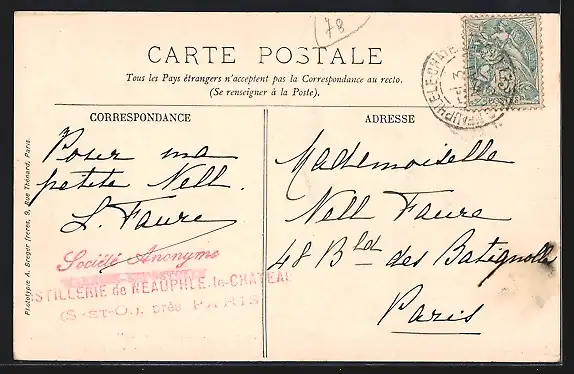 78
CARTE POSTALE
Tous les Pays étrangers n'acceptent pas la Correspondance au recto.
(Se renseigner à la Poste).
CORRESPONDANCE
Pour ma
petite Nell.
L. Faure
Société Anonyme
DISTILLERIE de NEAUPHLE-le-CHATEAU
(S.-ET-O.), près PARIS
ADRESSE
Mademoiselle
Nell Faure
48 Bld des Batignolles
Paris
Phototypie A. Breger frères, 9, Rue Thénard, Paris.